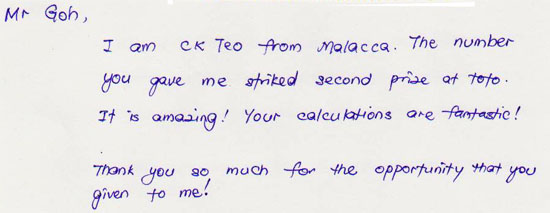 Mr Goh,
I am CK Teo from Malacca. The number
you gave me striked second prize at toto.
It is amazing! Your calculations are fantastic!
Thank you so much for the opportunity that you
given to me!